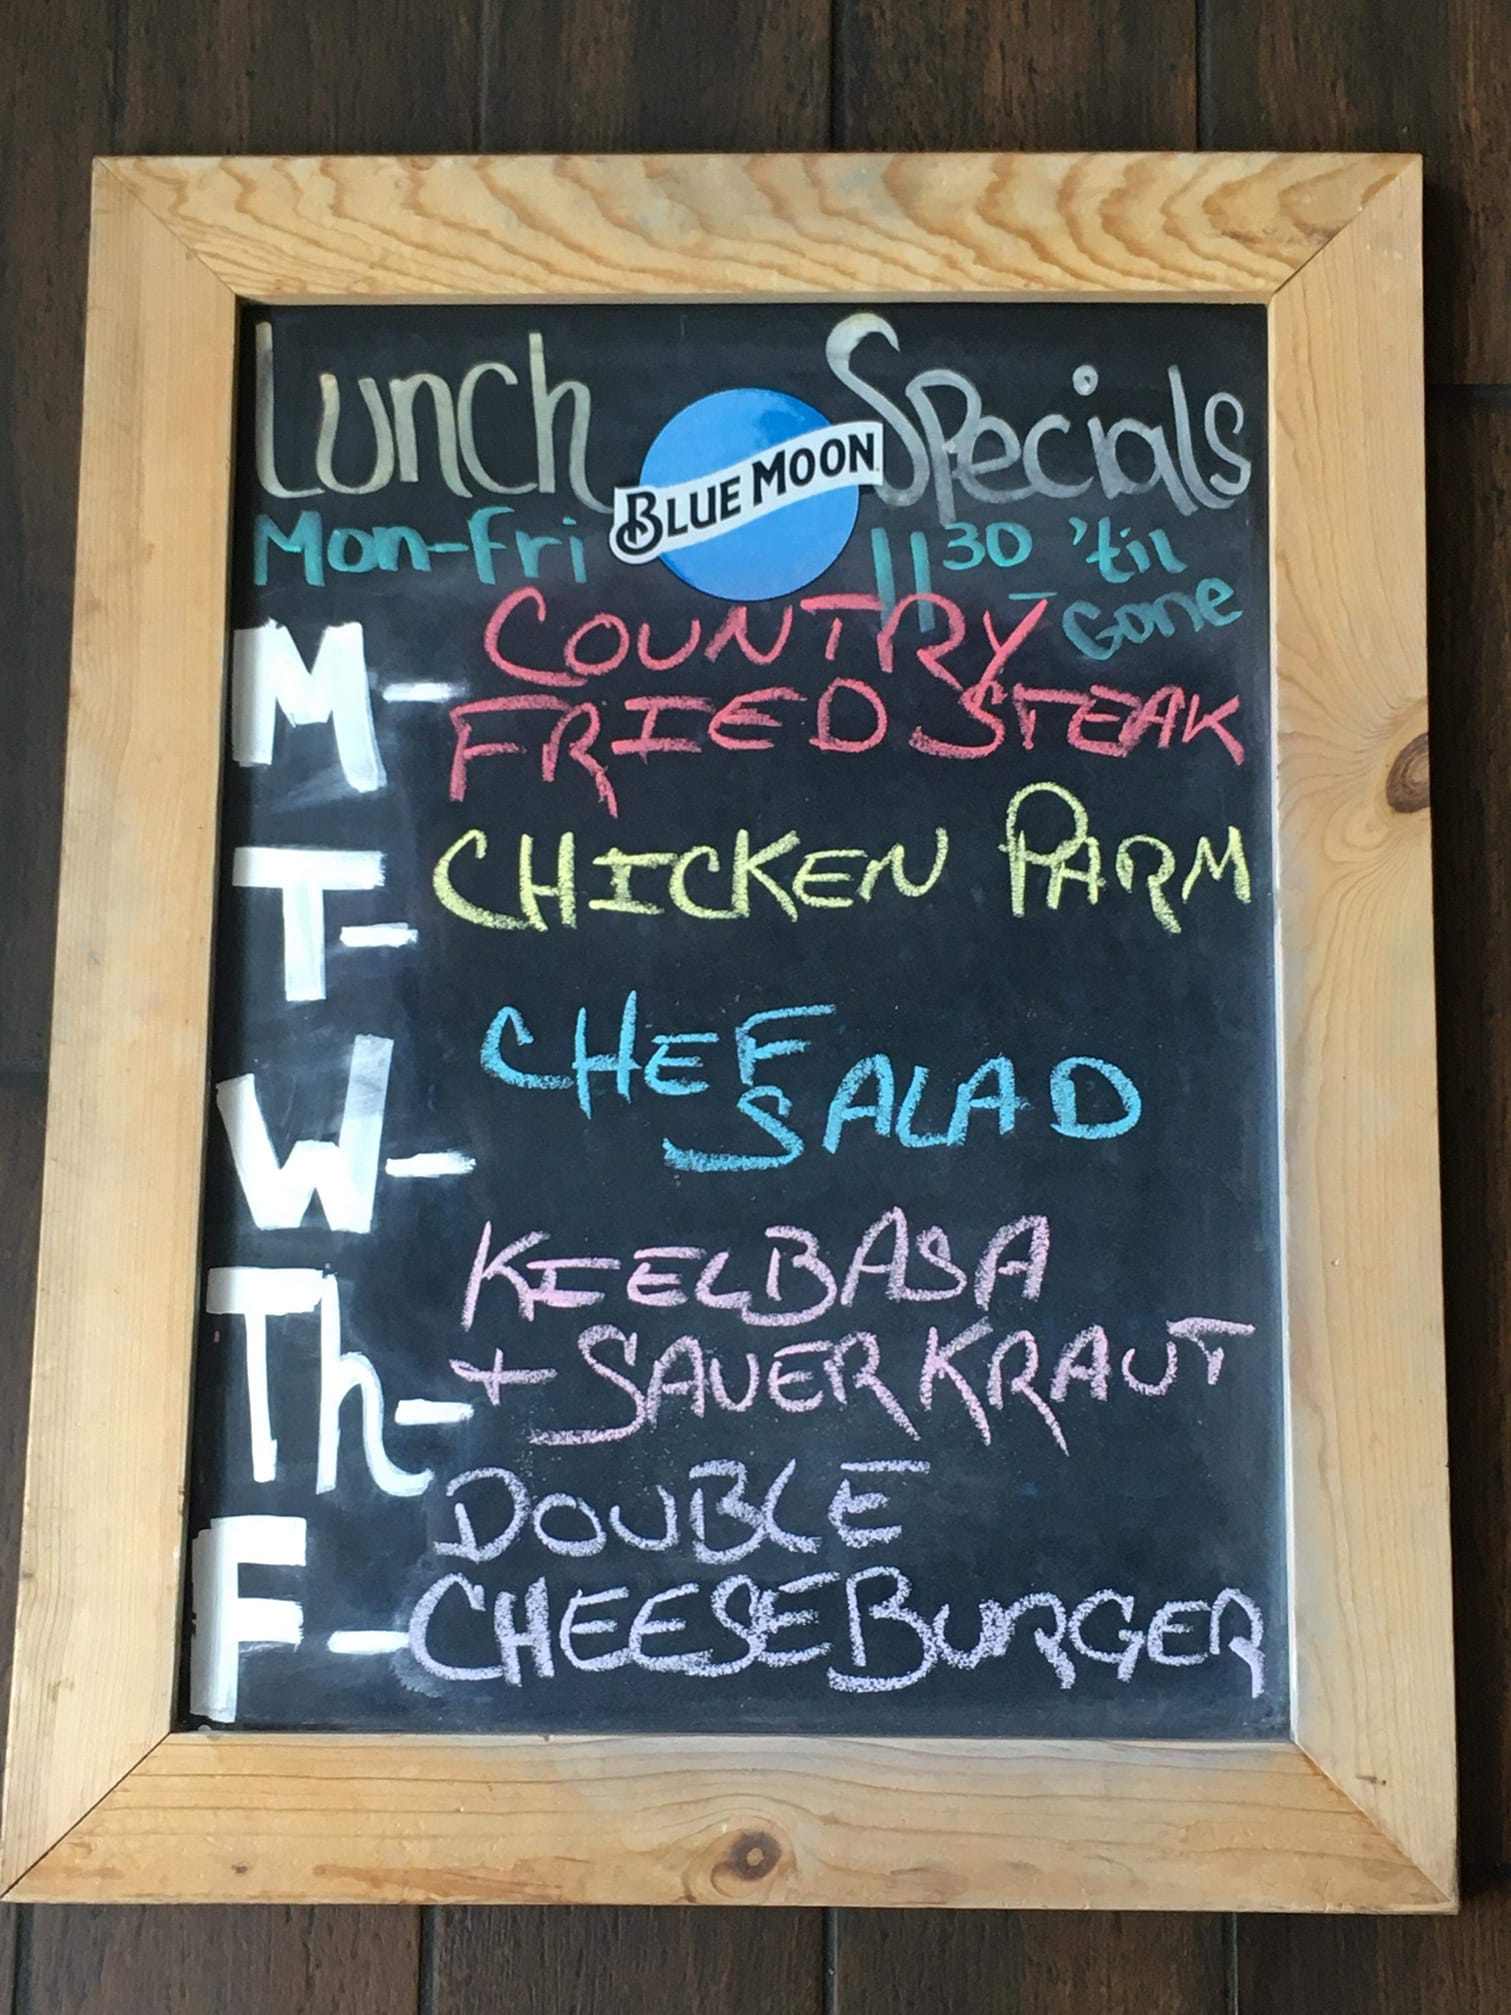 Lunch Specials
BLUE MOON
Mon-Fri 11 30 - 'til Gone
M- COUNTRY
FRIED STEAK
T- CHICKEN PARM
W- CHEF
SALAD
Th- KIELBASA
+ SAUERKRAUT
F- DOUBLE
CHEESEBURGER